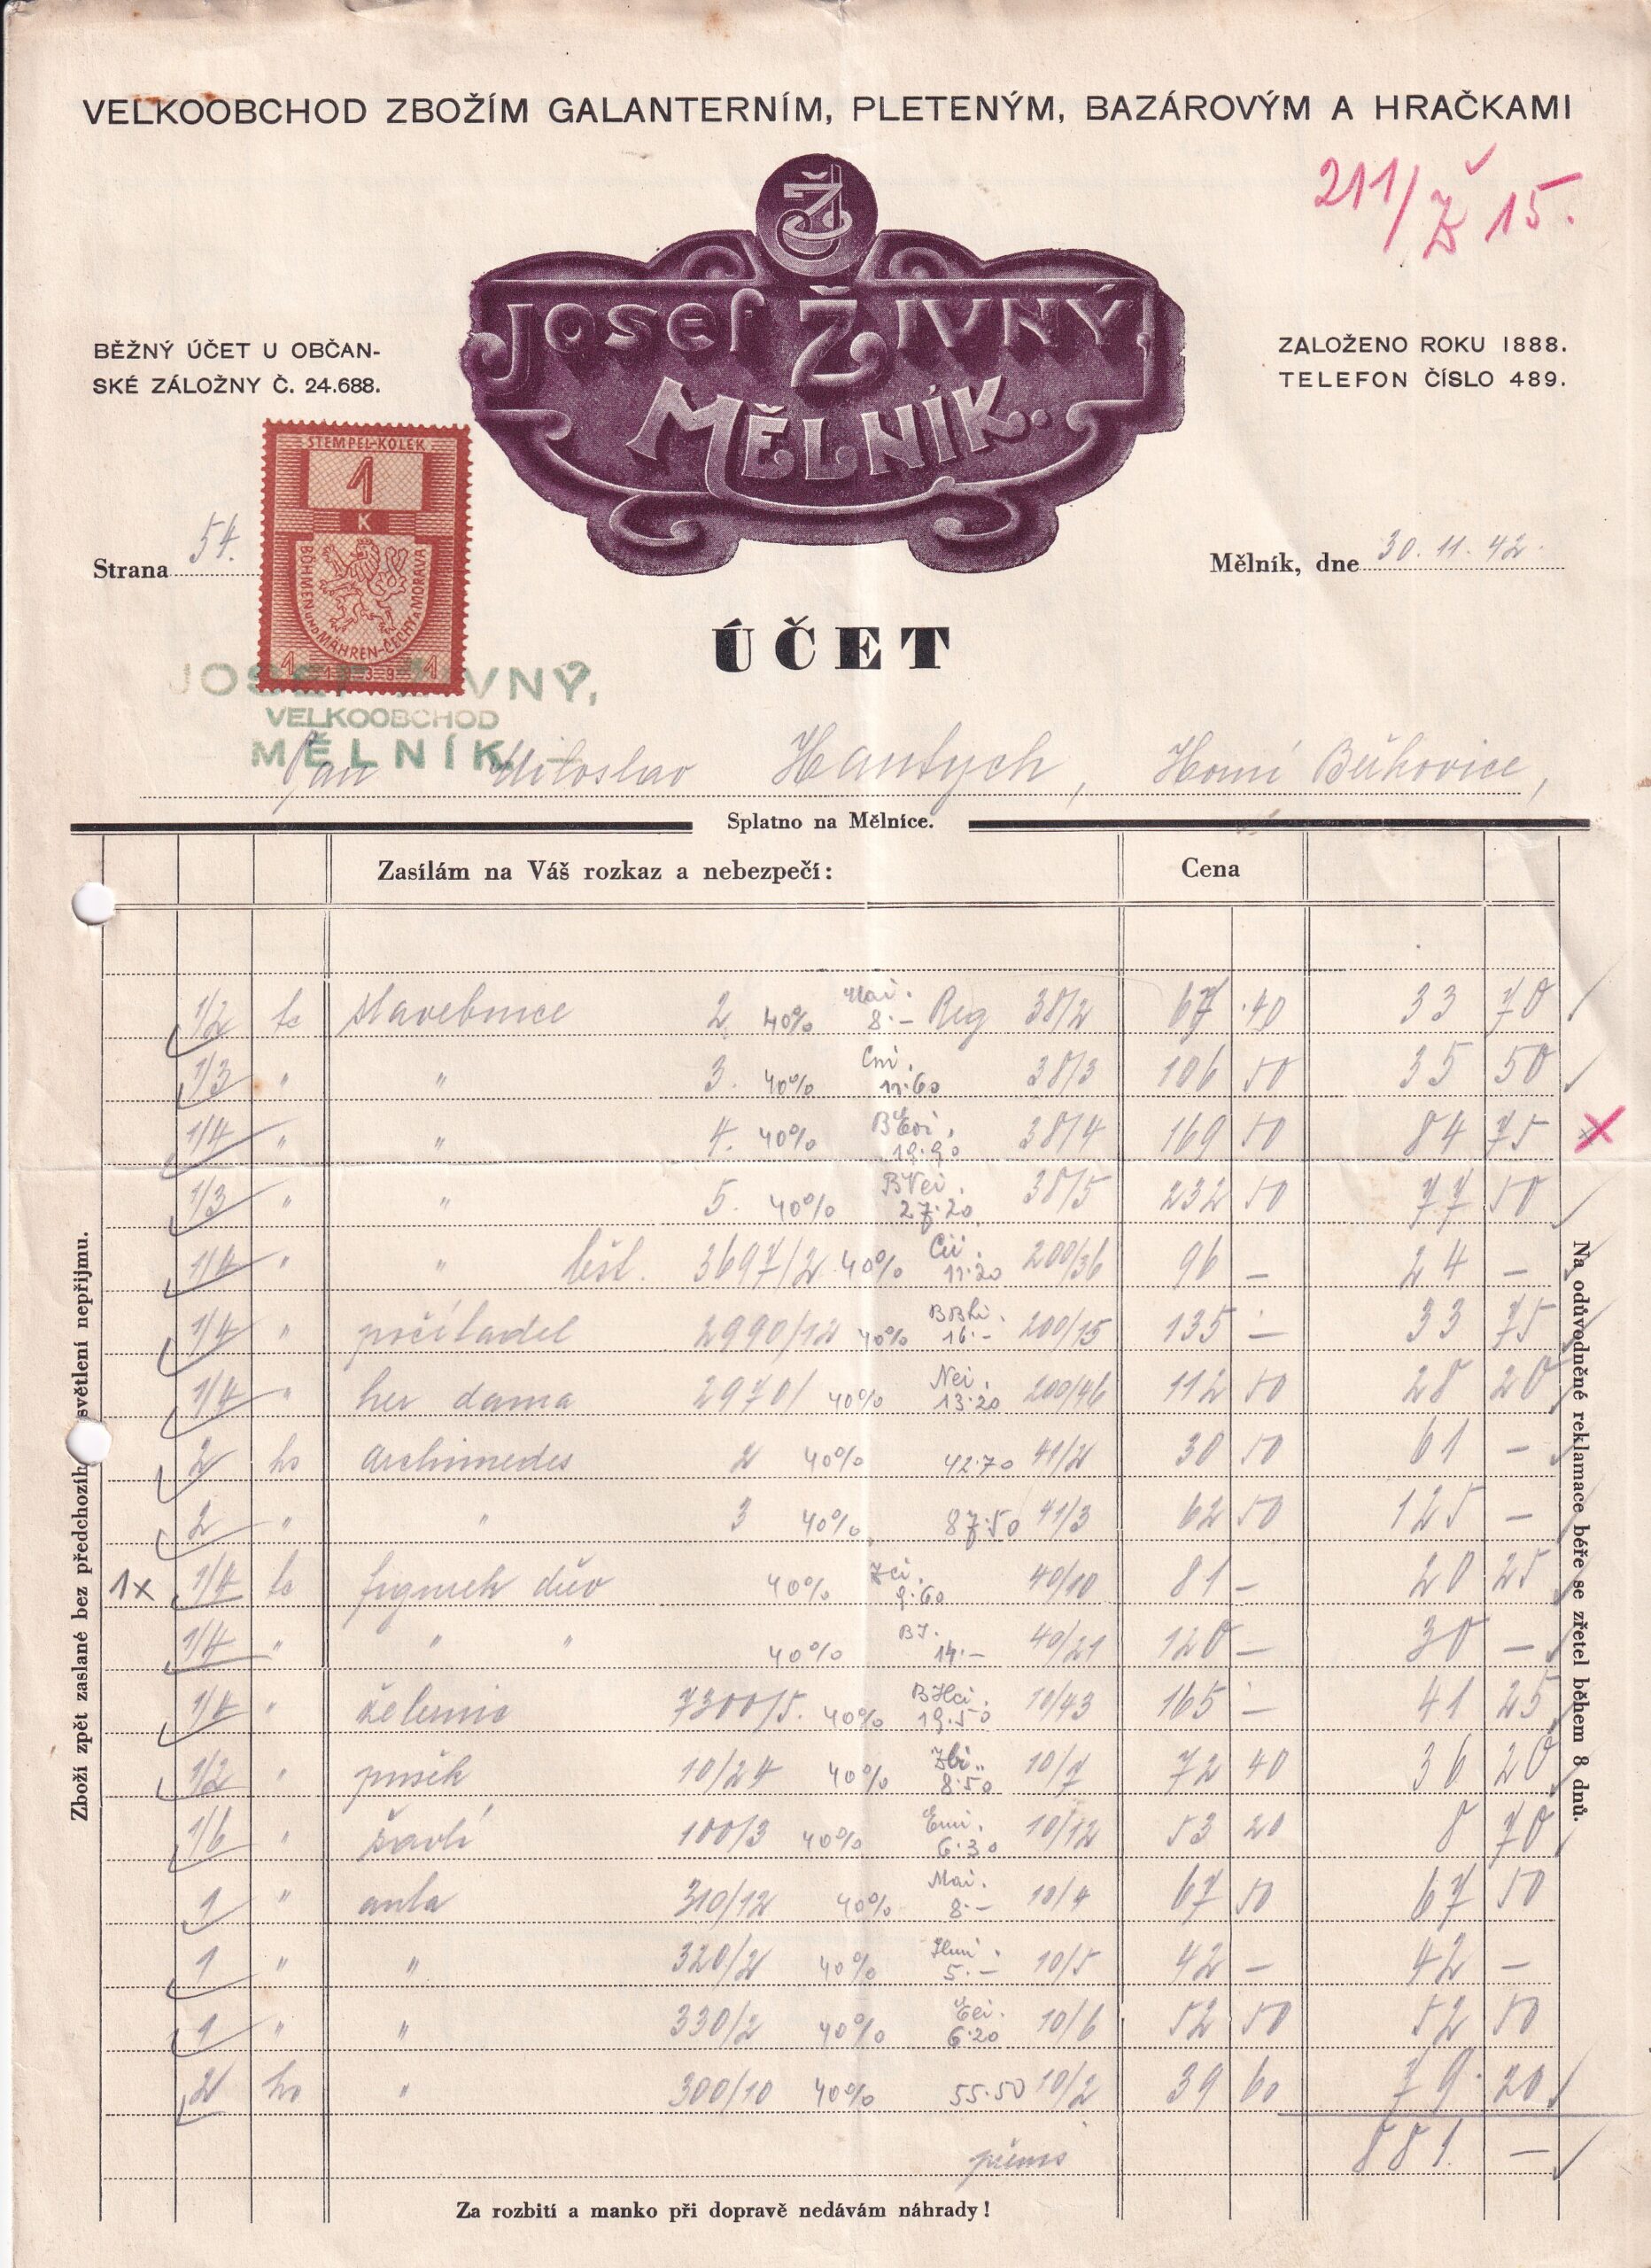 VELKOOBCHOD ZBOŽÍM GALANTERNÍM, PLETENÝM, BAZÁROVÝM A HRAČKAMI
211/Ž 15.
Ž
JOSEF ŽIVNÝ
MĚLNÍK..
BĚŽNÝ ÚČET U OBČAN-
SKÉ ZÁLOŽNY Č. 24.688.
ZALOŽENO ROKU 1888.
TELEFON ČÍSLO 489.
STEMPEL-KOLEK
1
K
BÖHMEN UND MÄHREN-ČECHY A MORAVA
1 1939 1
Strana 54.
Mělník, dne 30. 11. 42.
ÚČET
JOSEF ŽIVNÝ,
VELKOOBCHOD
MĚLNÍK
Pan Miloslav Hantych, Horní Beřkovice,
Splatno na Mělníce.
Zasílám na Váš rozkaz a nebezpečí: Cena
1/2 tc stavebnice 2 40% 8·- Reg 38/2 67 ·40 33 70
1/3 " " 3. 40% 11·60 38/3 106 50 35 50
1/4 " " 4. 40% 19·90 38/4 169 50 84 75 x
1/3 " " 5. 40% 27·20 38/5 232 50 77 50
1/4 " " lešt. 3697/2 40% 11·20 200/36 96 — 24 —
1/4 " počítadel 2990/12 40% 16·- 200/15 135 — 33 75
1/4 " her dama 2970/ 40% Nei. 13·20 200/46 112 50 28 20
2 ks Archimedes 2 40% 42·70 41/2 30 50 61 —
2 " " 3 40% 87·50 41/3 62 50 125 —
1x 1/4 tc figurek dřev 40% 9·60 40/10 81 — 20 25
1/4 " " " 40% 14·- 40/21 120 — 30 —
1/4 " 7300/5. 40% 19·50 10/43 165 — 41 25
1/2 " pušek 10/24 40% 8·50 10/7 72 40 36 20
1/6 " šavlí 100/3 40% 6·30 10/12 53 20 8 70
1 " auta 310/12 40% Mai. 8·- 10/4 67 50 67 50
1 " " 320/2 40% 5·- 10/5 42 — 42 —
1 " " 330/2 40% 6·20 10/6 52 50 52 50
2 ks " 300/10 40% 55·50 10/2 39 60 79·20
přenos 881 —
Zboží zpět zaslané bez předchozího světlení nepřijmu.
Na odůvodněné reklamace béře se zřetel během 8 dnů.
Za rozbití a manko při dopravě nedávám náhrady!